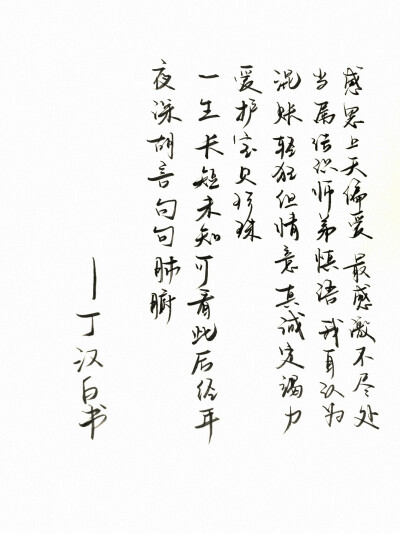 感恩上天偏爱 最感激不尽处
当属结识师弟慎语 我自认为
混账轻狂但情意真诚定竭力
爱护宝贝珍珠
一生长短未知可看此后经年
夜深胡言句句肺腑
—丁汉白书